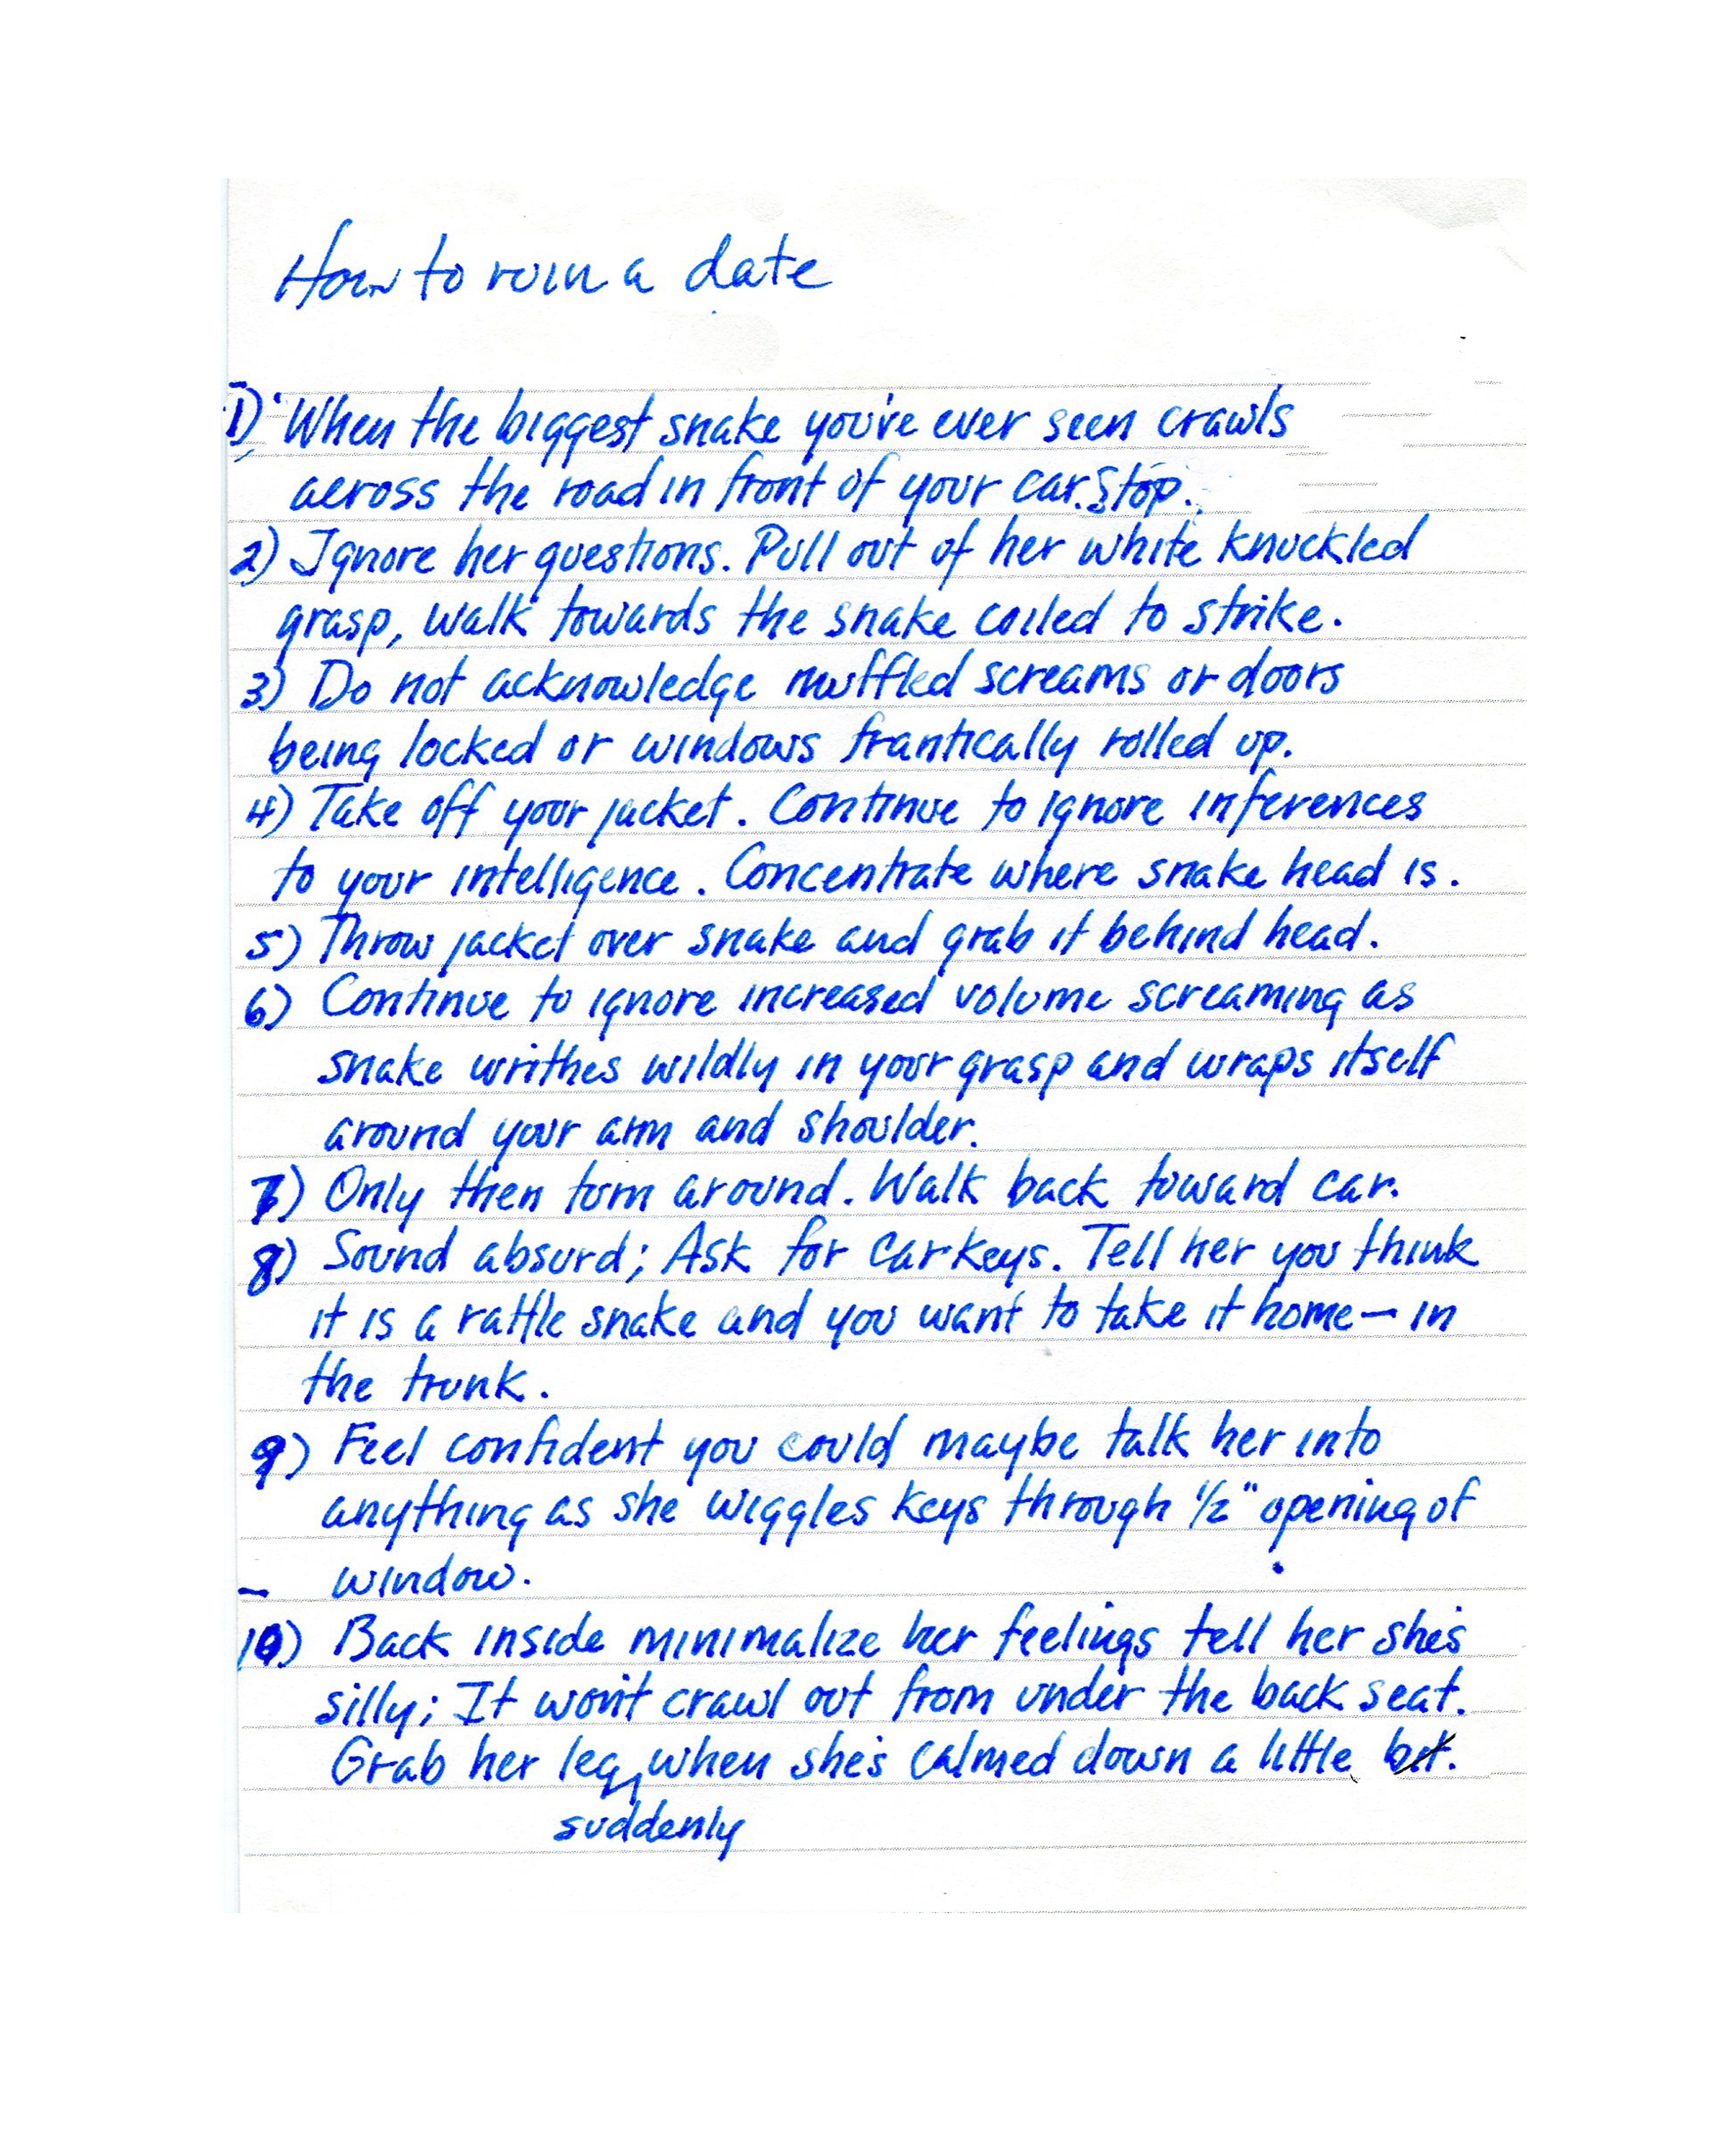 How to ruin a date
1) When the biggest snake you've ever seen crawls
across the road in front of your car. Stop.
2) Ignore her questions. Pull out of her white knuckled
grasp, walk towards the snake coiled to strike.
3) Do not acknowledge muffled screams or doors
being locked or windows frantically rolled up.
4) Take off your jacket. Continue to ignore inferences
to your intelligence. Concentrate where snake head is.
5) Throw jacket over snake and grab it behind head.
6) Continue to ignore increased volume screaming as
snake writhes wildly in your grasp and wraps itself
around your arm and shoulder.
7) Only then turn around. Walk back toward car.
8) Sound absurd; Ask for carkeys. Tell her you think
it is a rattle snake and you want to take it home — in
the trunk.
9) Feel confident you could maybe talk her into
anything as she wiggles keys through 1/2" opening of
window.
10) Back inside minimalize her feelings tell her she's
silly; It won't crawl out from under the back seat.
Grab her leg, when she's calmed down a little bit.
suddenly